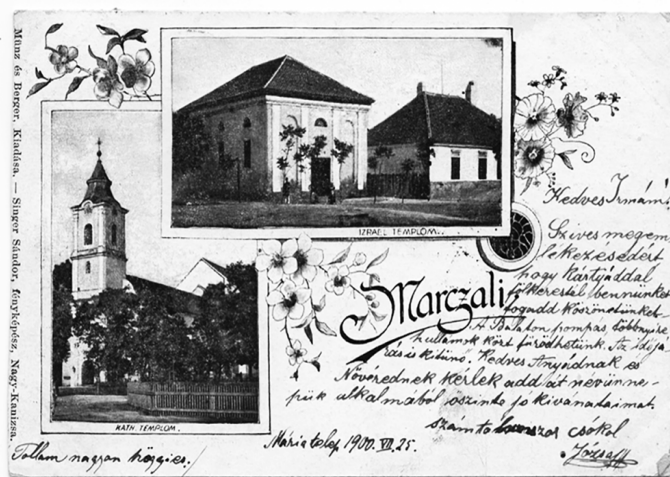 Münz és Berger, Kiadása. — Singer Sándor, fényképész, Nagy-Kanizsa.
IZRAEL TEMPLOM.
KATH. TEMPLOM.
Marczali
Kedves Irmám!
Szíves megem
lékezésedért
hogy kártyáddal
felkerestél bennünket
fogadd köszönetünket.
A Balaton pompás többnyire
hullámok közt fürödhetünk. Az időjá
rás is kitünő. Kedves Anyádnak és
Nővérednek kérlek add át nevünne-
pük alkalmából őszinte jó kivánadaimat.
számtalanszor csókol
József
Máriatelep 1900. VII. 25.
Tollam nagyon hegyies!